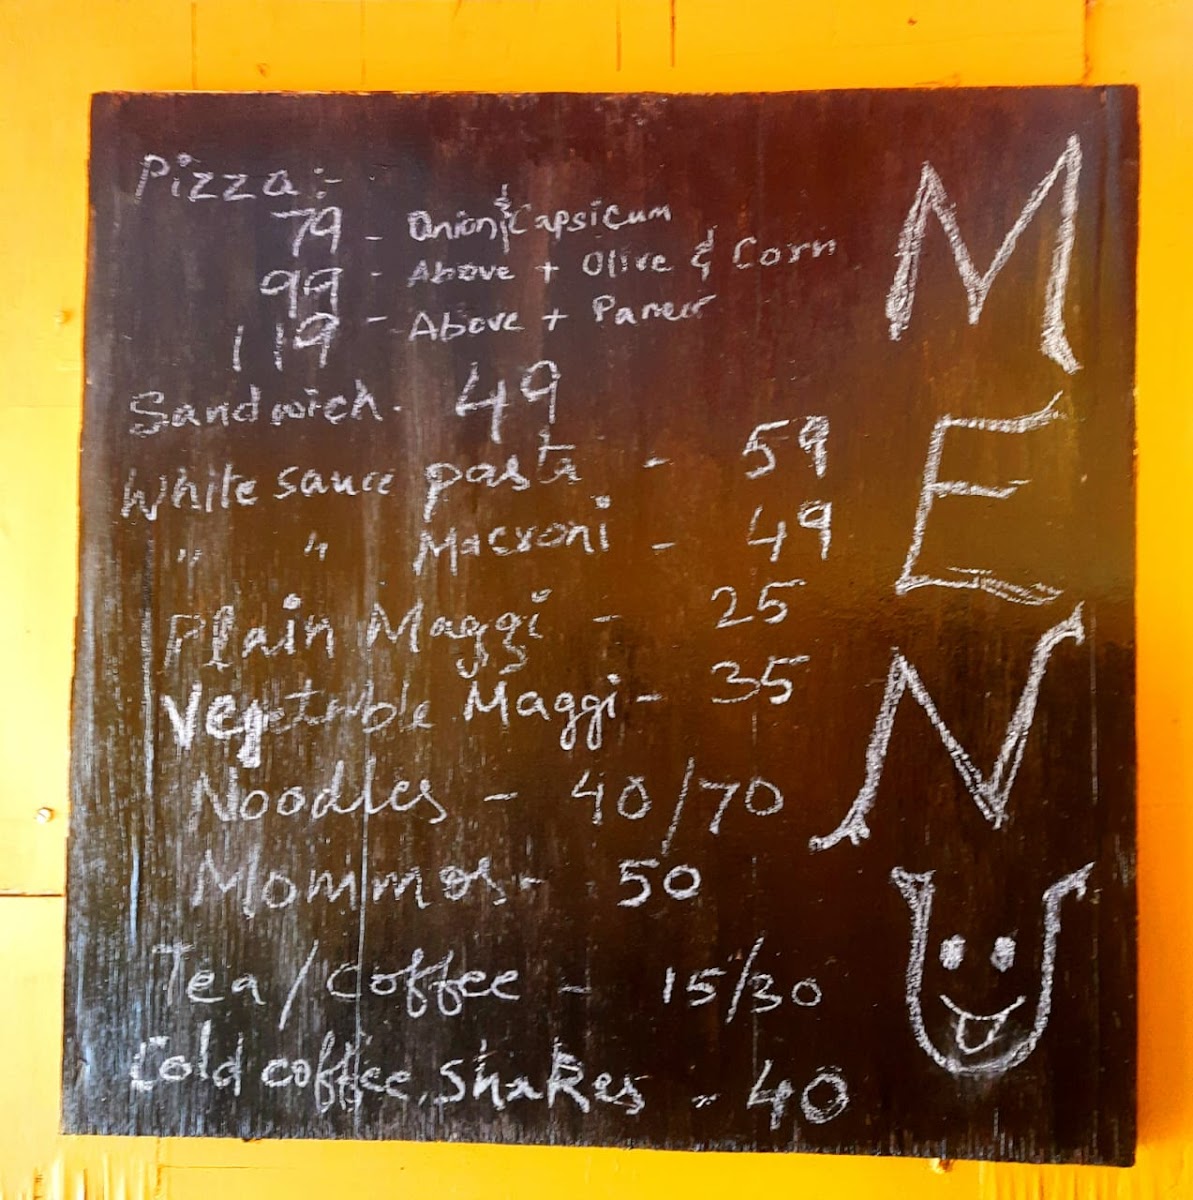 MENU
Pizza:-
79 - Onion & Capsicum
99 - Above + Olive & Corn
119 - Above + Paneer
Sandwich. 49
White sauce pasta - 59
" " Macroni - 49
Plain Maggi - 25
Vegetable Maggi - 35
Noodles - 40/70
Mommos - 50
Tea/Coffee - 15/30
Cold coffee, Shakes - 40